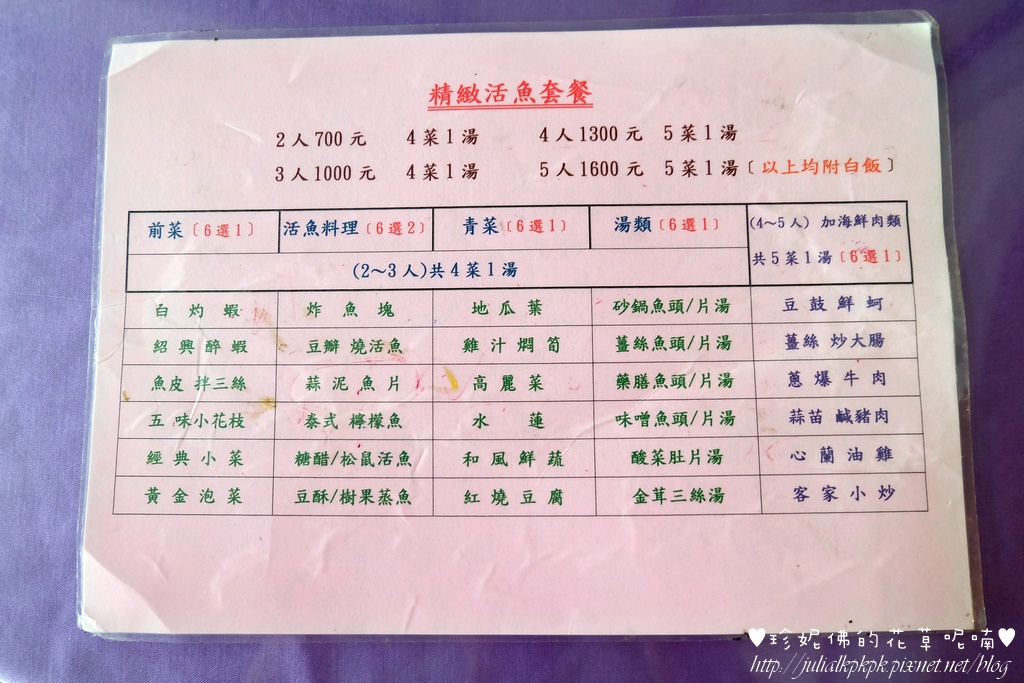 精緻活魚套餐
2人700元 4菜1湯 4人1300元 5菜1湯
3人1000元 4菜1湯 5人1600元 5菜1湯〔以上均附白飯〕
前菜〔6選1〕 活魚料理〔6選2〕 青菜〔6選1〕 湯類〔6選1〕 (4～5人) 加海鮮肉類
共5菜1湯〔6選1〕
(2～3人)共4菜1湯
白灼蝦 炸魚塊 地瓜葉 砂鍋魚頭/片湯 豆鼓鮮蚵
紹興醉蝦 豆瓣燒活魚 雞汁燜筍 薑絲魚頭/片湯 薑絲炒大腸
魚皮拌三絲 蒜泥魚片 高麗菜 藥膳魚頭/片湯 蔥爆牛肉
五味小花枝 泰式檸檬魚 水蓮 味噌魚頭/片湯 蒜苗鹹豬肉
經典小菜 糖醋/松鼠活魚 和風鮮蔬 酸菜肚片湯 心蘭油雞
黃金泡菜 豆酥/樹果蒸魚 紅燒豆腐 金茸三絲湯 客家小炒
♥珍妮佛的花草呢喃♥
http://julialkpkpk.pixnet.net/blog